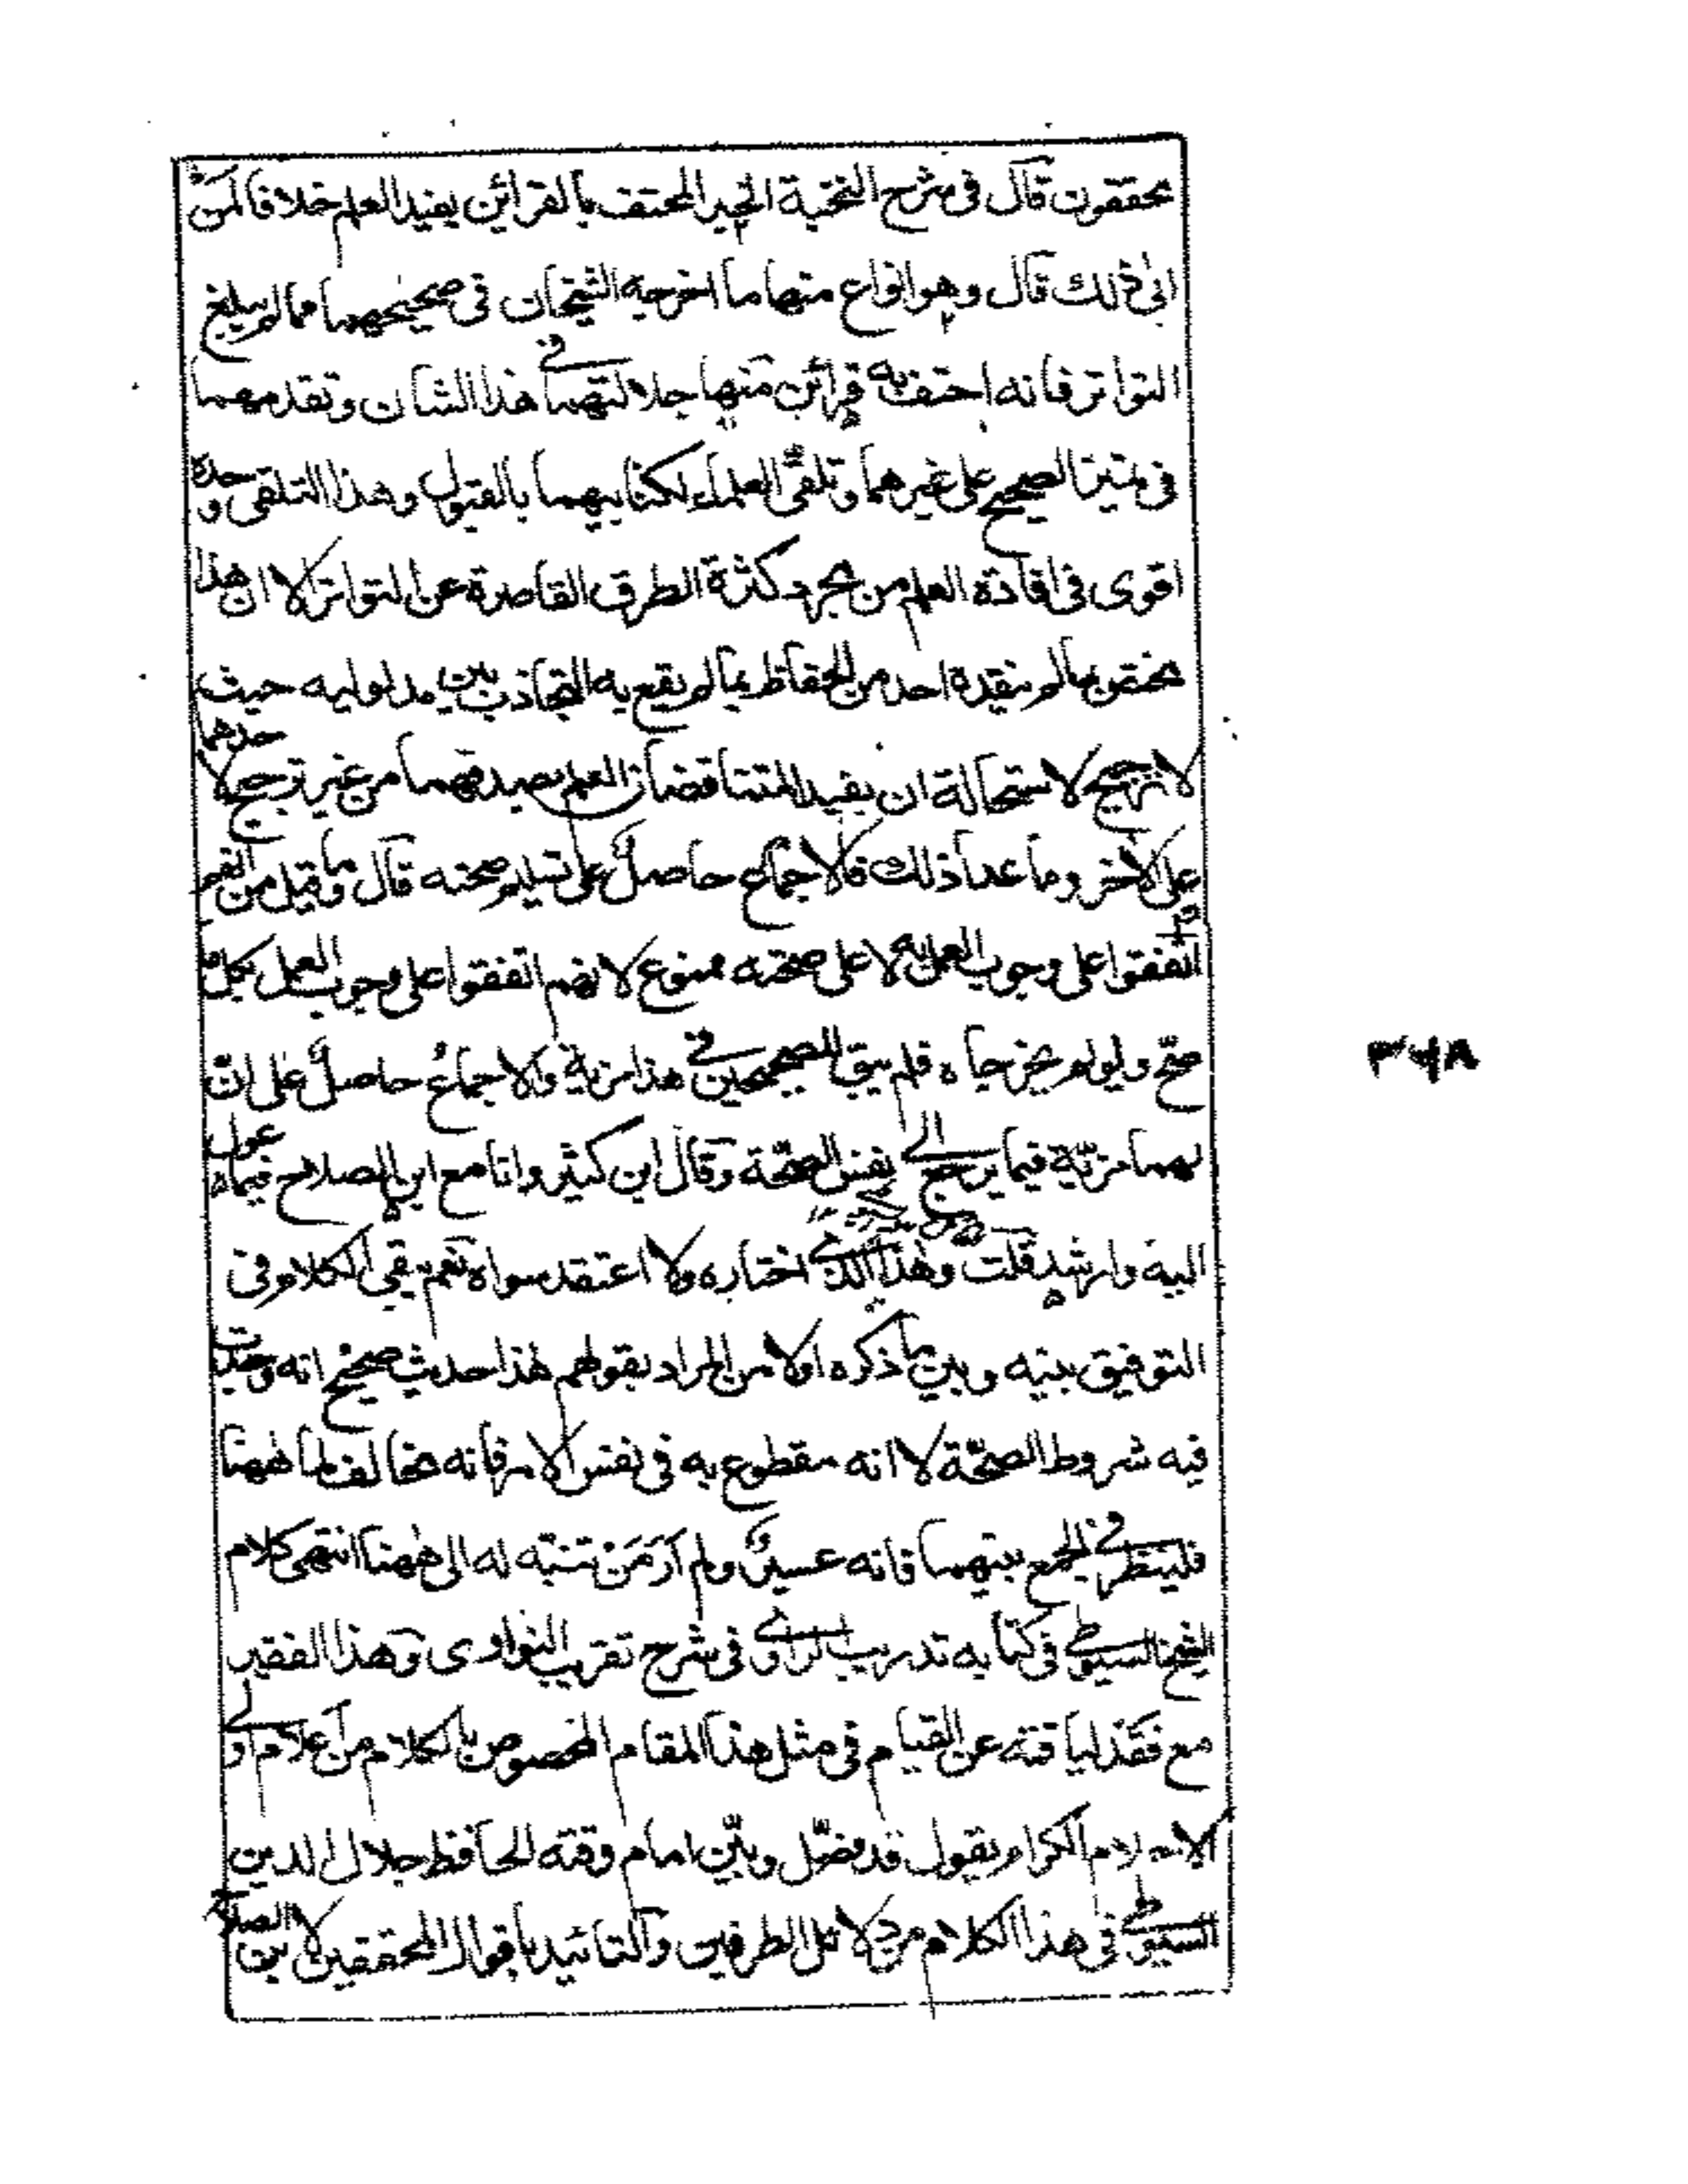 محققون قال فى شرح النخبة الخبر المحتف بالقرائن يفيد العلم خلافا لمن
ابى ذلك قال وهو انواع منها ما اخرجه الشيخان فى صحيحيهما مما لم يبلغ
التواتر فانه احتف به قرائن منها جلالتهما فى هذا الشان وتقدمهما
فى تميز الصحيح على غيرهما وتلقى العلماء لكتابيهما بالقبول وهذا التلقى وحده
اقوى فى افادة العلم من مجرد كثرة الطرق القاصرة عن التواتر الا ان هذا
مختص بما لم ينقده احد من الحفاظ بما لم يقع به التجاذب بين مدلوليه حيث
لا ترجيح لاستحالة ان يفيد المتناقضان العلم بصدقهما من غير ترجيح لاحدهما
على الآخر وما عدا ذلك فالاجماع حاصل على تسليم صحته قال وما قيل من انهم
اتفقوا على وجوب العمل به لا على صحته ممنوع لانهم اتفقوا على وجوب العمل بكل ما
صح ولو لم يخرجاه فلم يبق للصحيحين فى هذا مزية والاجماع حاصل على ان
لهما مزية فيما يرجع الى نفس الصحة وقال ابن كثير وانا مع ابن الصلاح فيما عول
اليه وارشد قلت وهذا الذى اختاره ولا اعتقد سواه نعم يبقى الكلام فى
التوفيق بينه وبين ما ذكره اولا من المراد بقولهم هذا حديث صحيح انه وجدت
فيه شروط الصحة لا انه مقطوع به فى نفس الامر فانه مخالف لما ههنا
فلينظر فى الجمع بينهما فانه عسير ولم ار من تنبه له الى ههنا انتهى كلام
الشيخ السيوطى فى كتابه تدريب الراوى فى شرح تقريب النواوى وهذا الفقير
مع فقد لياقته عن القيام فى مثل هذا المقام المخصوص بالكلام من اعلام اولى
الاسلام الكرام يقول قد فصل وبين امام وقته الحافظ جلال الدين
السيوطى فى هذا الكلام من دلائل الطرفين والتائيد باقوال المحققين لابن الصلاح
٣٦٨